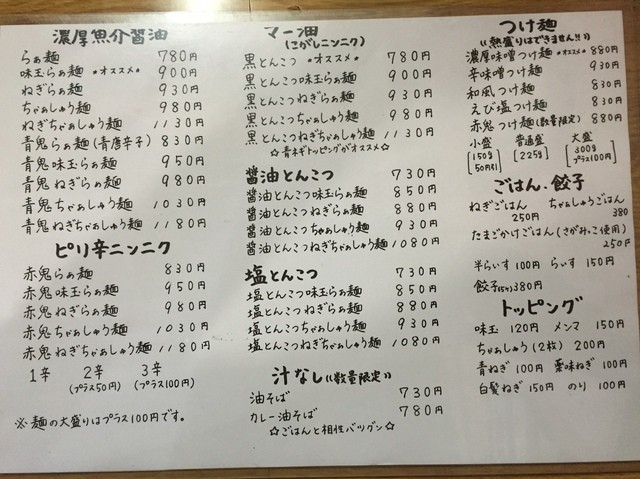 濃厚魚介醤油
らぁ麺 780円
味玉らぁ麺 *オススメ* 900円
ねぎらぁ麺 930円
ちゃぁしゅう麺 980円
ねぎちゃぁしゅう麺 1130円
青鬼らぁ麺(青唐辛子) 830円
青鬼味玉らぁ麺 950円
青鬼ねぎらぁ麺 980円
青鬼ちゃぁしゅう麺 1030円
青鬼ねぎちゃぁしゅう麺 1180円
ピリ辛ニンニク
赤鬼らぁ麺 830円
赤鬼味玉らぁ麺 950円
赤鬼ねぎらぁ麺 980円
赤鬼ちゃぁしゅう麺 1030円
赤鬼ねぎちゃぁしゅう麺 1180円
1辛 2辛 3辛
(プラス50円) (プラス100円)
※麺の大盛りはプラス100円です。
マー油
(こがしニンニク)
黒とんこつ *オススメ* 780円
黒とんこつ味玉らぁ麺 900円
黒とんこつねぎらぁ麺 930円
黒とんこつちゃぁしゅう麺 980円
黒とんこつねぎちゃぁしゅう麺 1130円
☆青ネギトッピングがオススメ☆
醤油とんこつ 730円
醤油とんこつ味玉らぁ麺 850円
醤油とんこつねぎらぁ麺 880円
醤油とんこつちゃぁしゅう麺 930円
醤油とんこつねぎちゃぁしゅう麺 1080円
塩とんこつ 730円
塩とんこつ味玉らぁ麺 850円
塩とんこつねぎらぁ麺 880円
塩とんこつちゃぁしゅう麺 930円
塩とんこつねぎちゃぁしゅう麺 1080円
汁なし((数量限定))
油そば 730円
カレー油そば 780円
☆ごはんと相性バツグン☆
つけ麺
((熱盛りはできません!!))
濃厚味噌つけ麺 *オススメ* 880円
辛味噌つけ麺 930円
和風つけ麺 830円
えび塩つけ麺 830円
赤鬼つけ麺(数量限定) 880円
小盛 普通盛 大盛
[150g 50円引] [225g] [300g プラス100円]
ごはん・餃子
ねぎごはん 250円 ちゃぁしゅうごはん 380
たまごかけごはん(さがみっこ使用) 250円
半らいす 100円 らいす 150円
餃子(5ヶ) 380円
トッピング
味玉 120円 メンマ 150円
ちゃぁしゅう(2枚) 200円
青ねぎ 100円 薬味ねぎ 100円
白髪ねぎ 150円 のり 100円